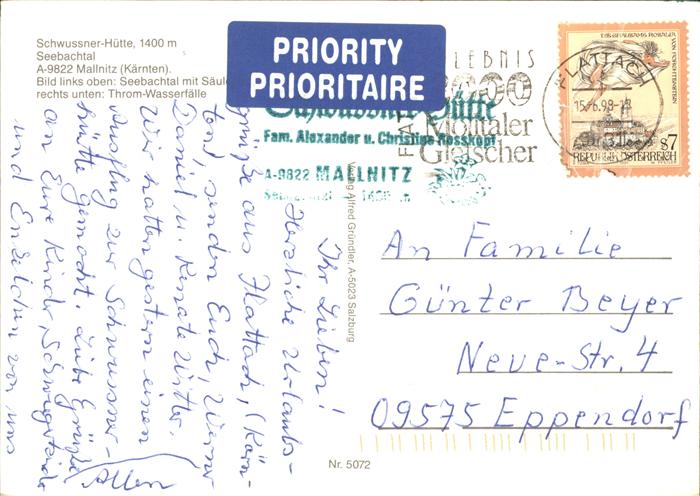 Schwussner-Hütte, 1400 m
Seebachtal
A-9822 Mallnitz (Kärnten).
Bild links oben: Seebachtal mit Säul
rechts unten: Throm-Wasserfälle
PRIORITY
PRIORITAIRE
Schwussner Hütte
Fam. Alexander u. Christine Rosskopf
A-9822 MALLNITZ
ERLEBNIS
Mölltaler
Gletscher
FLATTACH
15.-6.98-18
S7
REPUBLIK ÖSTERREICH
Ihr Lieben!
Herzliche Urlaubs-
grüße aus Flattach, (Kärn-
ten), senden Euch, Werner
Daniel u. Renate Witter.
Wir hatten gestern einen
Ausflug zur Schwussner-
hütte gemacht. Liebe Grüße
an Eure Kinder, Schwiegerkinder
und Enkelchen von uns
Allen
Verlag Alfred Gründler, A-5023 Salzburg
An Familie
Günter Beyer
Neue-Str. 4
09575 Eppendorf
Nr. 5072